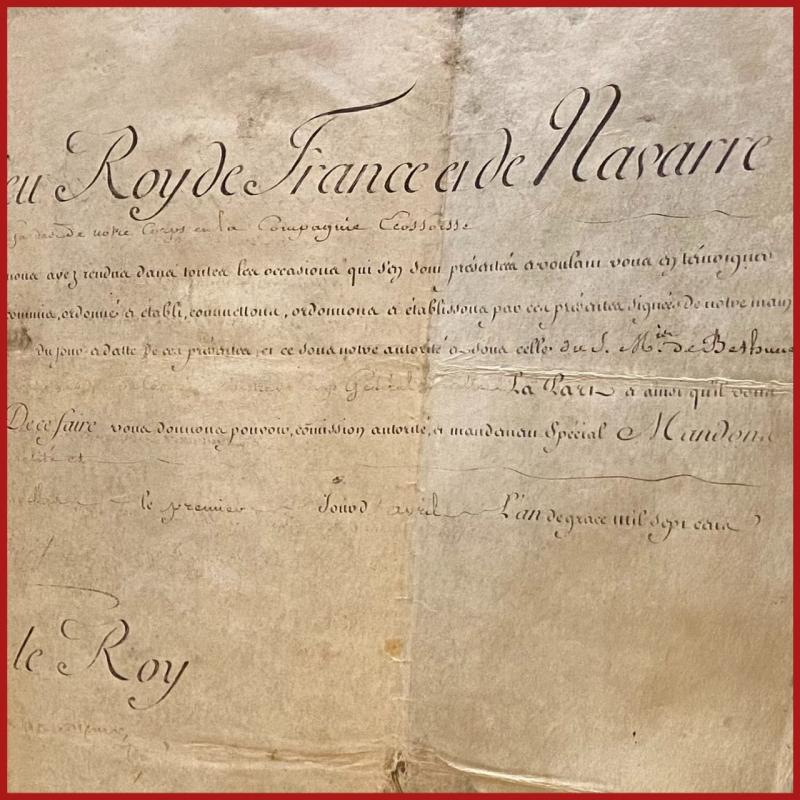 eu Roy de France et de Navarre
de notre Corps en la Compagnie Ecossoise
nous avez rendus dans toutes les occasions qui s'en sont présentées et voulant vous en témoigner
commis, ordonné et établi, commettons, ordonnons et établissons par ces présentes signées de notre main
du jour et datte de ces présentes, et ce sous notre autorité et sous celle du S. M.is de Bethune
Général La Paix et ainsi qu'il vous
De ce faire vous donnons pouvoir, comission autorité, et mandement Spécial Mandons
et
le premier Jour d' avril L'an de grace mil sept cens
le Roy